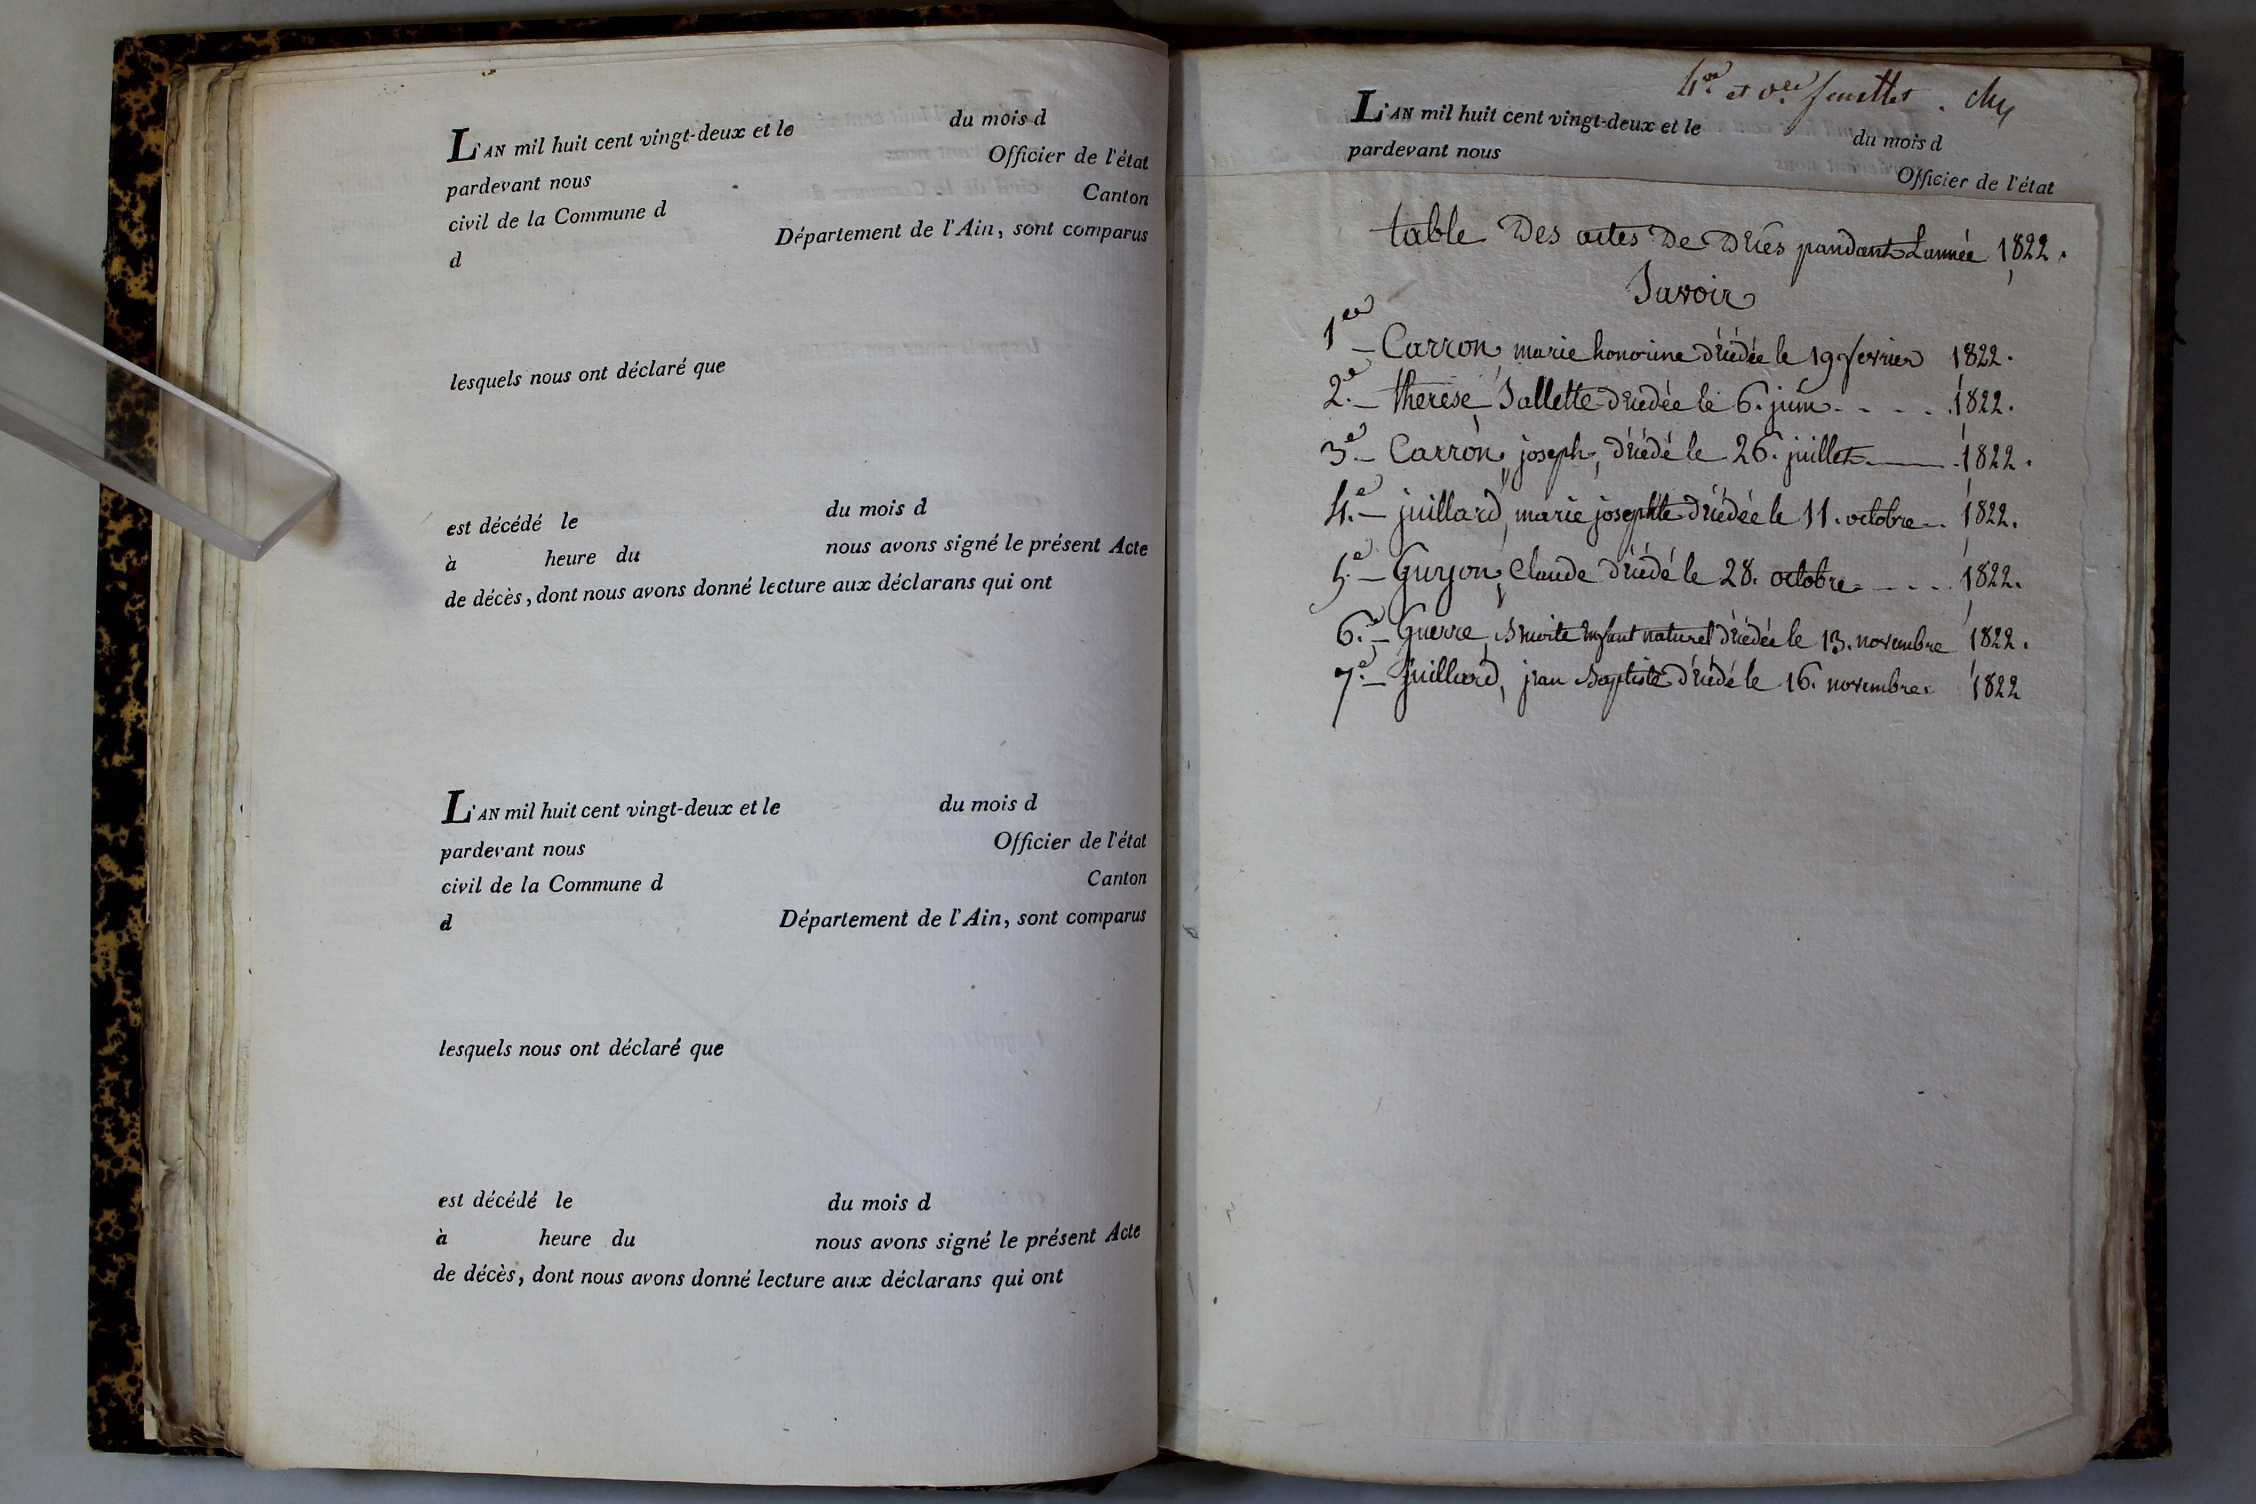 L'AN mil huit cent vingt-deux et le du mois d
pardevant nous Officier de l'état
civil de la Commune d Canton
d Département de l'Ain, sont comparus
lesquels nous ont déclaré que
est décédé le du mois d
à heure du nous avons signé le présent Acte
de décès, dont nous avons donné lecture aux déclarans qui ont
L'AN mil huit cent vingt-deux et le du mois d
pardevant nous Officier de l'état
civil de la Commune d Canton
d Département de l'Ain, sont comparus
lesquels nous ont déclaré que
est décédé le du mois d
à heure du nous avons signé le présent Acte
de décès, dont nous avons donné lecture aux déclarans qui ont
et feuillet.
L'AN mil huit cent vingt-deux et le du mois d
pardevant nous Officier de l'état
table Des actes De Décès pandant Lannée 1822.
Savoir
1ee — Carron, marie honorine décédée le 19 fevrier 1822.
2.e — therese Sallette décédée le 6. juin . . . . . 1822.
3e — Carron, joseph, décédé le 26. juillet 1822.
4.e — juillard, marie josephte décédée le 11. octobre . . 1822.
5.e — Guyon, Claude décédé le 28. octobre . . . . 1822.
6.e — Guerre, Benoite enfant naturel décédée le 13. novembre 1822.
7.e — Juillard, jean Baptiste décédé le 16. novembre 1822